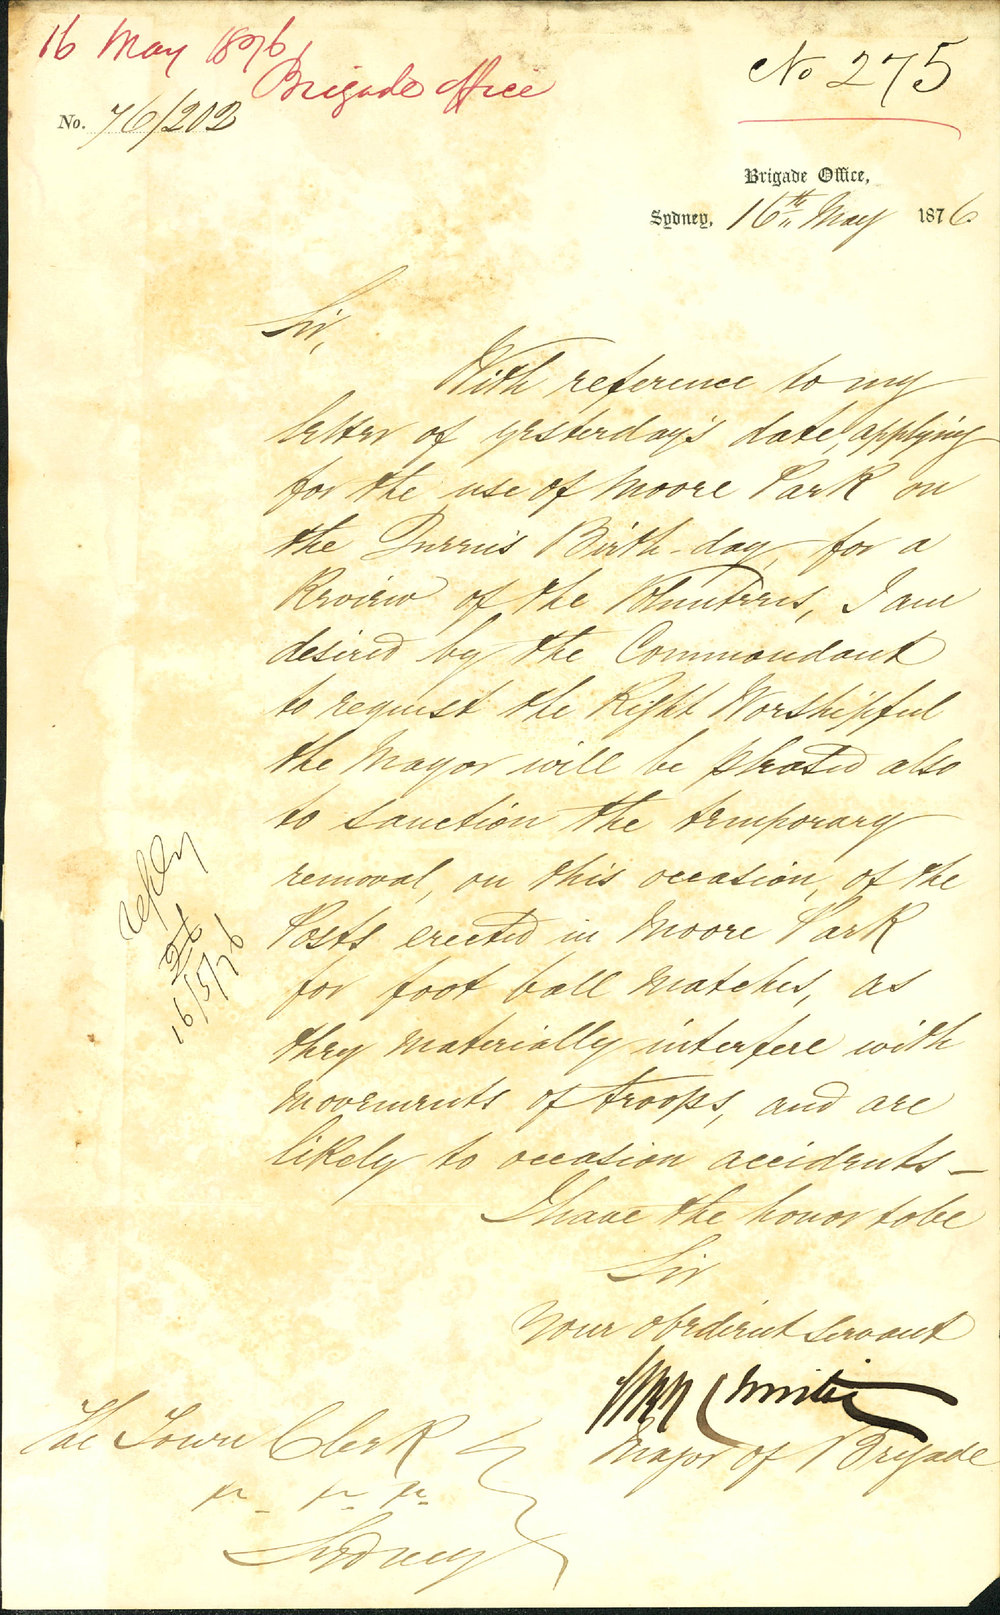 16 May 1876
Brigade Office
No 275
No. 76/202
Brigade Office,
Sydney, 16th May 1876.
Sir,
With reference to my
letter of yesterday's date, applying
for the use of Moore Park on
the Queen's Birth-day, for a
Review of the Volunteers, I am
desired by the Commandant
to request the Right Worshipful
the Mayor will be pleased also
to sanction the temporary
removal, on this occasion, of the
Posts erected in Moore Park
for foot ball matches, as
they materially interfere with
movements of troops, and are
likely to occasion accidents –
I have the honor to be
Sir
Your obedient servant
Major of Brigade
The Town Clerk
Sydney
reply
16/5/76